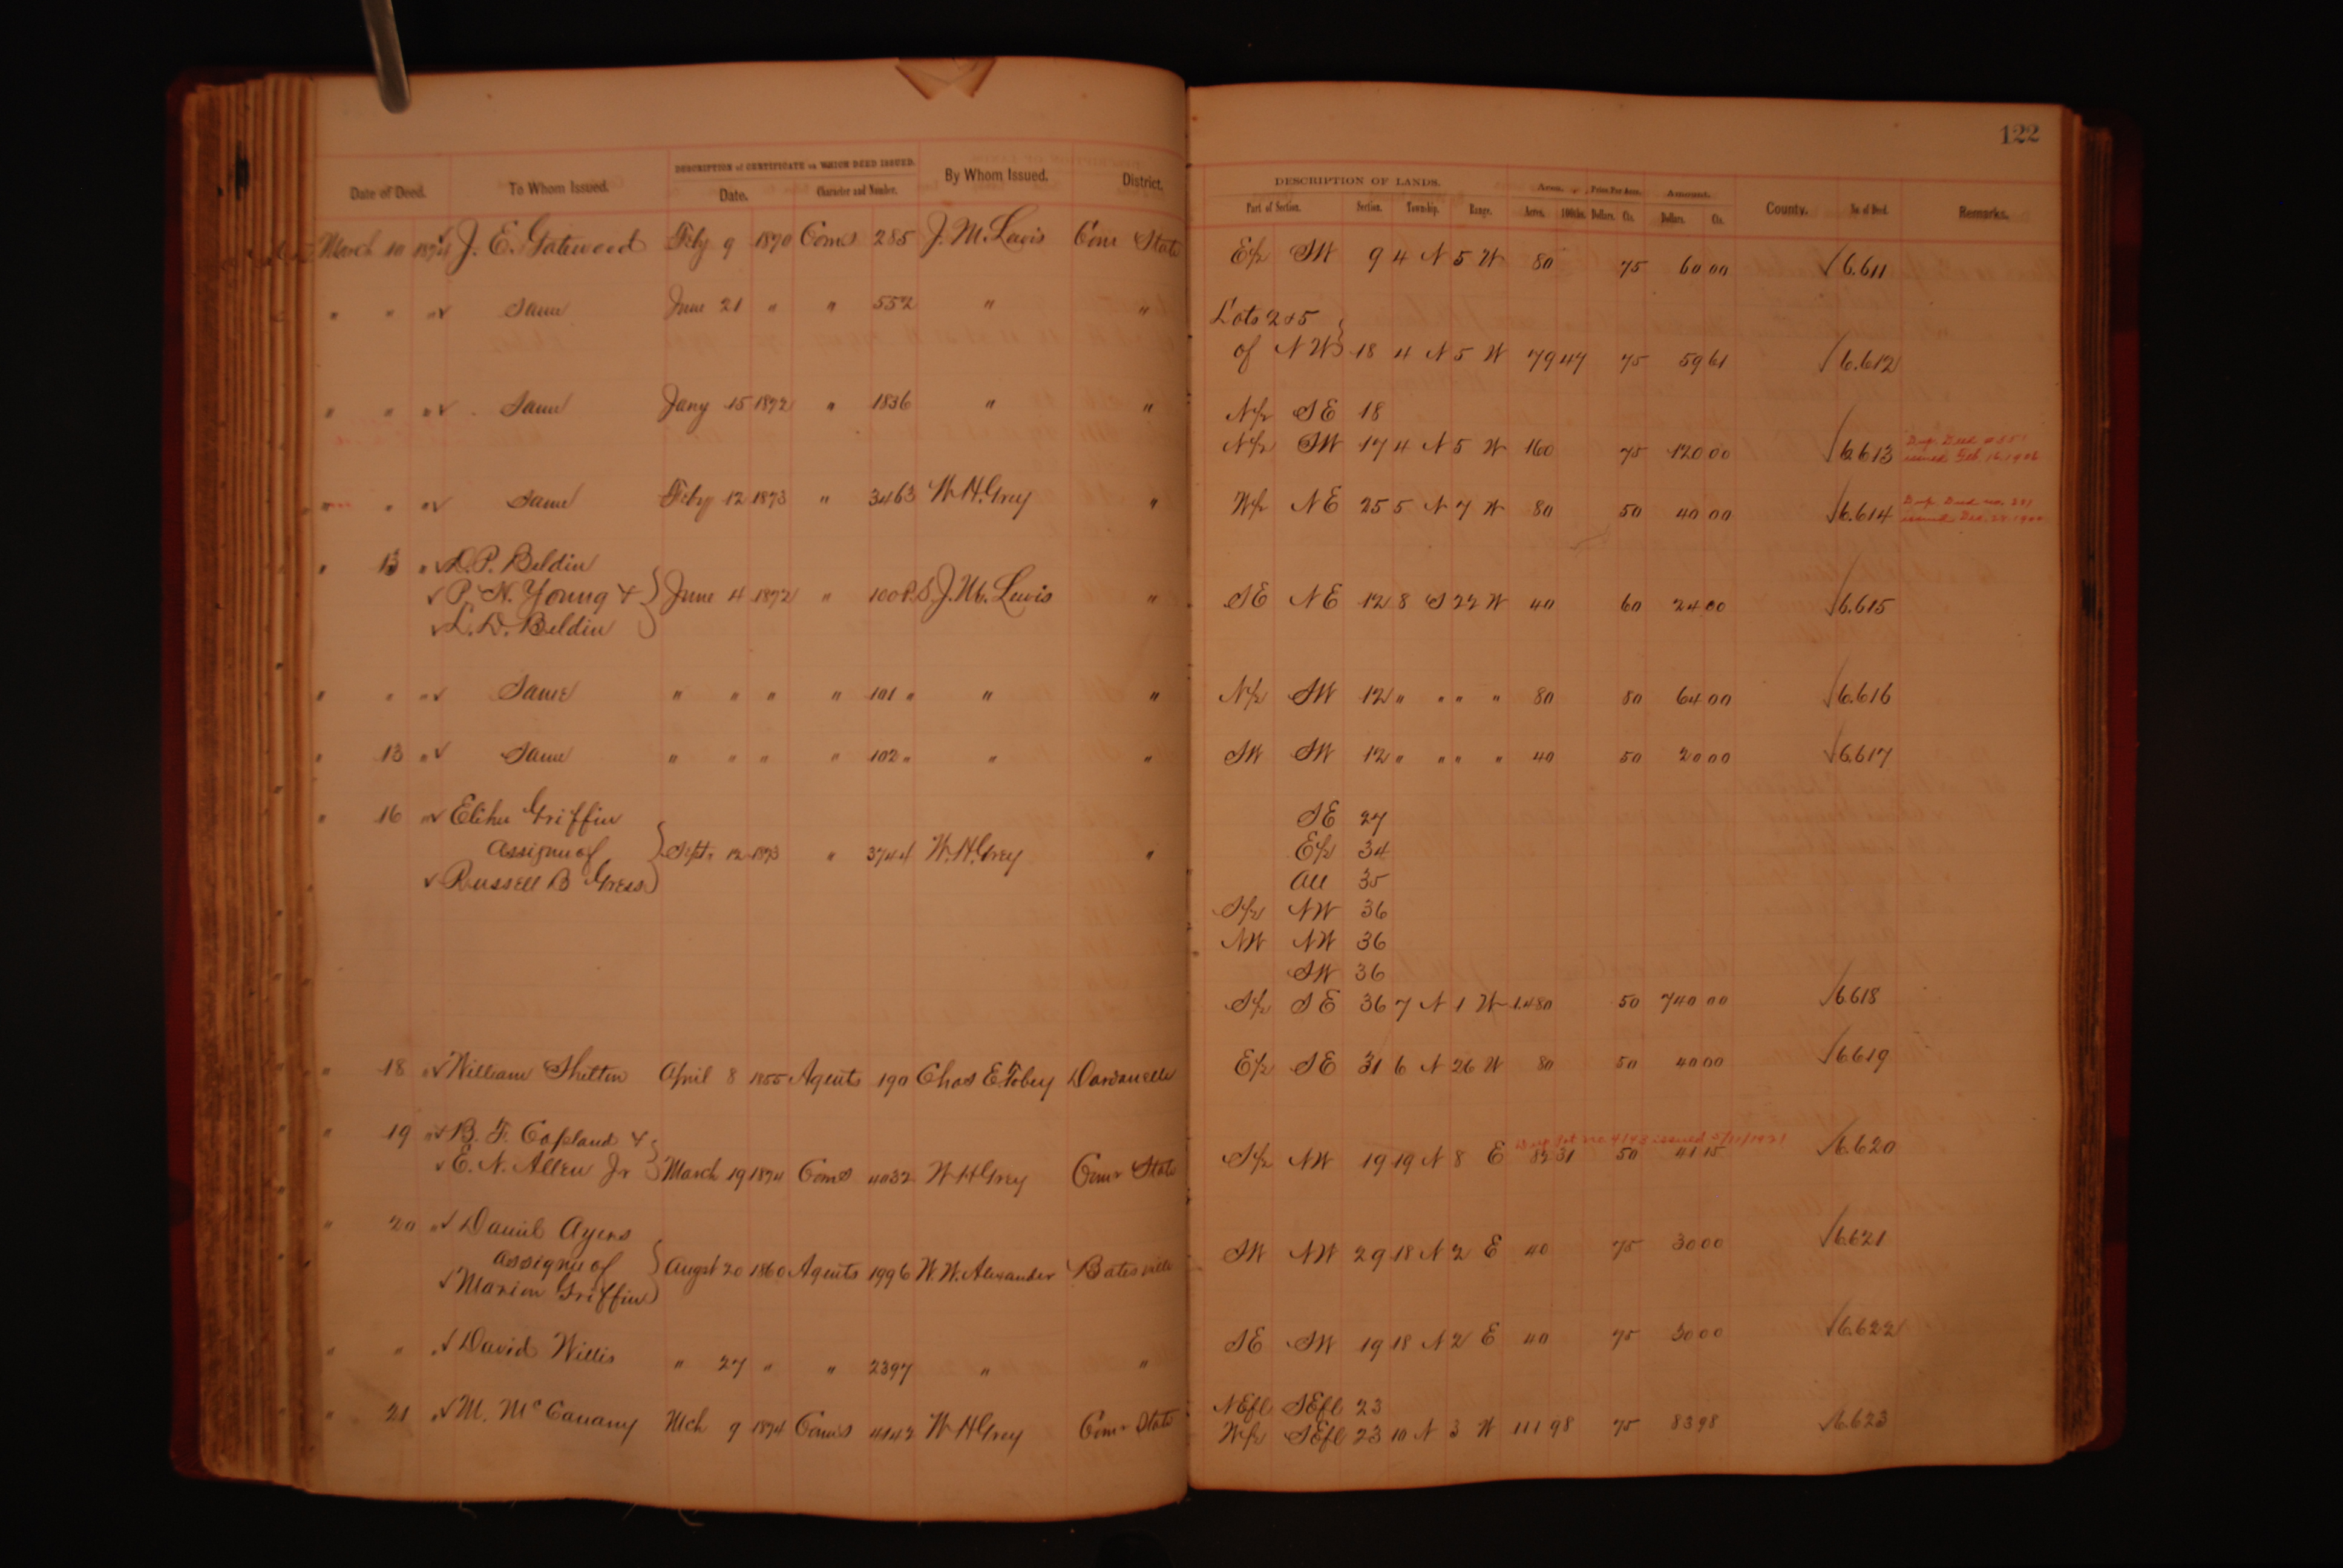 122
DESCRIPTION of CERTIFICATE on WHICH DEED ISSUED.
Date of Deed. To Whom Issued. Date. Character and Number. By Whom Issued. District.
DESCRIPTION OF LANDS. Area. Price Per Acre. Amount.
Part of Section. Section. Township. Range. Acres. 100ths. Dollars. Cts. Dollars. Cts. County. No. of Deed. Remarks.
March 10 1874 ✓ J. E. Gatewood Feby 9 1870 Coms 285 J. M. Lewis Comr State E/2 SW 9 4 N 5 W 80 75 60 00 ✓ 6.611
" " " ✓ Same June 21 " " 552 " " Lots 2 & 5 }
of NW } 18 4 N 5 W 79 47 75 59 61 ✓ 6.612
" " " ✓ Same Jany 15 1872 " 1836 " " N/2 SE 18
N/2 SW 17 4 N 5 W 160 75 120 00 ✓ 6.613 Dup. Deed
issued Feb. 16, 1906
" " " ✓ Same Feby 12 1873 " 3463 W. H. Grey " W/2 NE 25 5 N 7 W 80 50 40 00 ✓ 6.614 Dup. Deed no.
issued Dec. 28. 1900
" 13 " ✓ D. P. Beldin
✓ P. N. Young & } June 4 1872 " 100 P.S. J. M. Lewis " SE NE 12 8 S 22 W 40 60 24 00 ✓ 6.615
✓ L. D. Beldin
" " " ✓ Same " " " " 101 " " " N/2 SW 12 " " " " 80 80 64 00 ✓ 6.616
" 13 " ✓ Same " " " " 102 " " " SW SW 12 " " " " 40 50 20 00 ✓ 6.617
" 16 " ✓ Elihu Griffin SE 27
assignee of } Sept. 12 1873 " 3744 W. H. Grey " E/2 34
✓ Russell B Gress All 35
S/2 NW 36
NW NW 36
SW 36
S/2 SE 36 7 N 1 W 1.480 50 740 00 ✓ 6.618
" 18 " ✓ William Shelton April 8 1855 Agents 190 Chas E. Tobey Dardanelle E/2 SE 31 6 N 26 W 80 50 40 00 ✓ 6.619
" 19 " ✓ B. F. Copeland &
✓ E. N. Allen Jr } March 19 1874 Coms 4032 W H Grey Comr State S/2 NW 19 19 N 8 E 82 31 50 41 15 ✓ 6.620
" 20 " ✓ Daniel Ayers
assignee of } Augst 20 1860 Agents 1996 W. W. Alexander Batesville SW NW 29 18 N 2 E 40 75 30 00 ✓ 6.621
✓ Marion Griffin
" " " ✓ David Willis " 27 " " 2397 " " SE SW 19 18 N 2 E 40 75 30 00 ✓ 6.622
" 21 " ✓ M. McCanany Mch 9 1874 Coms 4142 W H Grey Comr State NEfl SEfl 23
W/2 SEfl 23 10 N 3 W 111 98 75 83 98 ✓ 6.623